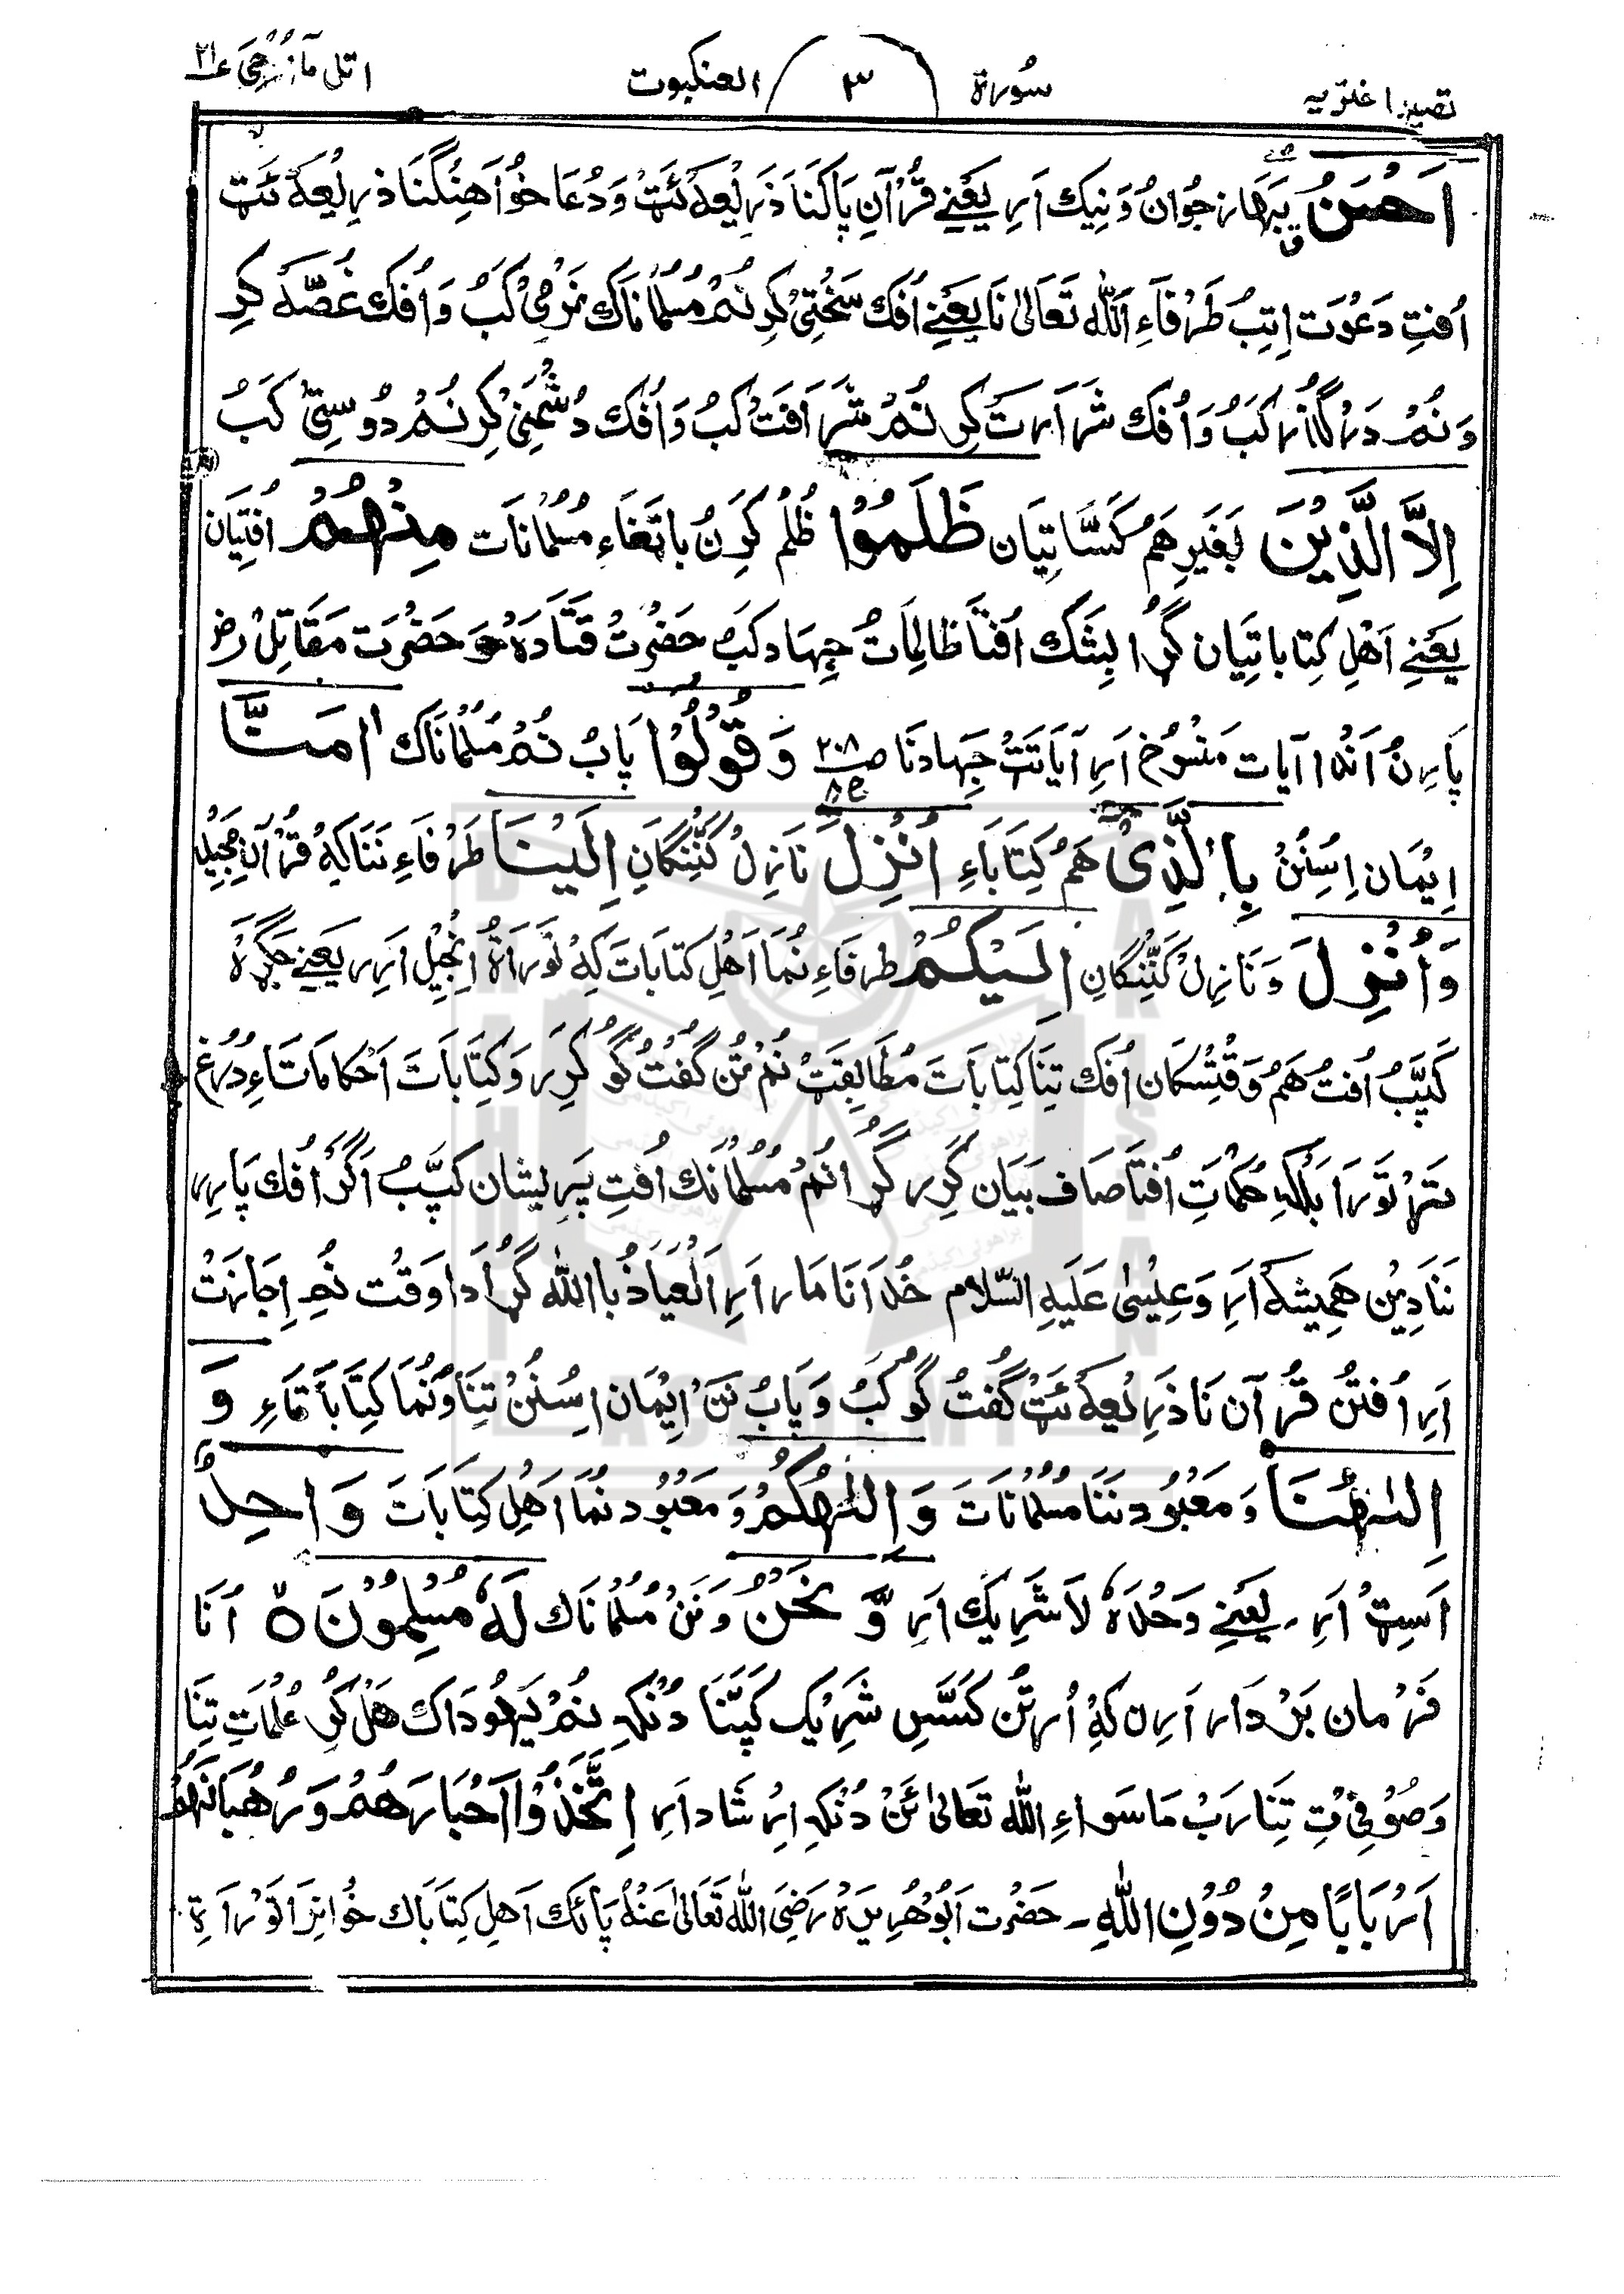 تفسیر اختریه سُورة ٣ العنکبوت اتل مآ
اَحْسَنُ جُوانُ وَنِیک اَرِ یَعْنِے قُرْآنِ پَاکَنَا ذَرِیْعَهٗ ئَٹْ وَدُعَا خُوَاهِنْگنَا ذرِیْعَهٗ ئَٹ
اُفتِ دَعْوَت اِتِبُ طَرْفَاءِ اَللّٰه تَعَالیٰ نَا یَعْنِے اُفک سَخْتِیْ کرِ نُمْ مُسلمَانَاک نَرْمِیْ کَبُ وَ اُفک غُصَّه کرِ
وَنُمْ دَرْگُذر کَبُ وَ اُفک شَرَارَت کرِ نُمْ شَرَافَتْ کَبُ وَ اُفک دُشْمَنِیْ کرِ نُمْ دُوسِتیْ کَبُ
اِلاَّ الَّذِیْنَ بَغَیرِ هَمُ کَسَّاتِیَان ظَلَمُوْا ظُلُم کَرِنُ بَاتَغَاءِ مُسلمَانَات مِنْهُمُ اُفتِیَان
یَعْنِے اَهْلِ کِتَابَاتِیَان گُرَا بِیشَک اُفتَا ظَالِمَات جِهَاد کَبُ حَضْرَتْ قَتَادَهْ وَ حَضْرَت مَقَاتِلْ رض
پَارِنُ اَنْدا آیَات مَنْسُوخ اَرِ آیَاتَتْ جِهَادنَا ص ٢٠٨ وَقُوْلُوْا پَابُ نُمْ مُسْلمَانَاک اٰمَنَّا
اِیْمَان اِسُنُنْ بِالَّذِیْ هَمُ کِتَابَاءِ اُنْزِلَ نَازِلْ کَنِنْگَانِ اِلَیْنَا طَرْفَاءِ نَنَا کِهْ قُرْآنِ مَجِیْد
وَاُنْزِلَ وَنَازِلْ کَنِنْگَانِ اِلَیْکُمْ طرفَاءِ نُمَا اَهْلِ کتَابَات کِهْ تَوْرَاةُ اِنْجِیْل اَرِر یَعْنِے جَگْرَهْ
کَپَّبُ اُفتُ هَمُ وَقْتِسْکَان اُفک تِنَا کِتَابَات مُطَابِقَتْ نُمْتُن گُفْتُ گُو کرِر وَ کِتَابَات اَحْکَامَاتَاءِ دُرُغ
تَوْرَا بَلْکِهِ حُکْمَاتِ اُفتَا صَاف بَیَان کَرِر گُرَا نُمْ مُسْلمَانَک اُفتِ پَرِیشَان کَپَّبُ اَگَرْ اُفک پَارِر
نَنَا دِیْن هَمِیشَهْ اَرِ وَ عِیْسیٰ عَلَیهِ السَّلام خُدَانَا مَار اَرِ اَلْعِیَاذُ بِاالله گُرَا دَا وَقْت نُمِ اِجَازَتْ
اَرِ اُفتُن قُرْآن نَا ذَرِیْعَهٗ ئَٹْ گُفْتُ گُو کَبُ وَ پَابُ نَنْ اِیْمَان اِسُنُنْ تِنَا وَنُمَا کِتَابَاتَاءِ وَ
اِلٰهُنَا وَ مَعْبُود نَنَا مُسْلمَانَات وَ اِلٰهُکُمْ وَ مَعْبُود نُمَا اَهْلِ کِتَابَات وَاحِدٌ
اَسِٹْ اَرِ۔ یَعْنِے وَحْدَهٗ لاَشَرِیْک اَرِ وَّ نَحْنُ وَ نَنْ مُسْلمَانَاک لَهٗ مُسْلِمُوْنَ ٥ اَنَا
فَرْمَان بَرْدَار اَرِن کِهْ اُرتُن کَسَّسِ شَرِیْک کَپَّنَا دُنْکِهِ نُمْ یَهُودَاک هَلْکُرِ عُلمَاتِ تِنَا
وَ صُوْفِیْ تِ تِنَا رَبْ مَاسَوَاءِ اللّٰه تَعَالیٰ ئَنْ دُنْکِهِ اِرْشَاد اَرِ اِتَّخَذُوْا اَحْبَارَهُمْ وَرُهْبَانَهُمْ
اَرْبَابًا مِنْ دُوْنِ اللّٰهِ۔ حَضْرَت اَبُوْهُرَیْرَهْ رَضِیَ اللّٰه تَعَالیٰ عَنْهُ پَائَک اَهلِ کِتَابَاک خُوانِرَا تَوْرَاةِ